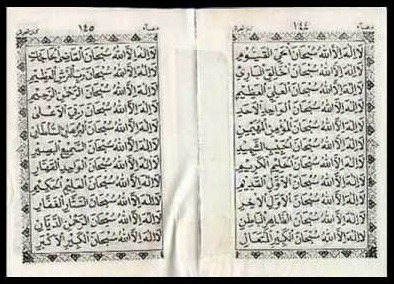 ١٤٤
لَا إِلٰهَ إِلَّا اللهُ سُبْحَانَ الْحَيِّ الْقَيُّوْمِ
لَا إِلٰهَ إِلَّا اللهُ سُبْحَانَ الْخَالِقِ الْبَارِئِ
لَا إِلٰهَ إِلَّا اللهُ سُبْحَانَ الْعَلِيِّ الْعَظِيْمِ
لَا إِلٰهَ إِلَّا اللهُ سُبْحَانَ الْأَحَدِ
لَا إِلٰهَ إِلَّا اللهُ سُبْحَانَ الْمُؤْمِنِ الْمُهَيْمِنِ
لَا إِلٰهَ إِلَّا اللهُ سُبْحَانَ الْحَسِيْبِ
لَا إِلٰهَ إِلَّا اللهُ سُبْحَانَ الْحَلِيْمِ الْكَرِيْمِ
لَا إِلٰهَ إِلَّا اللهُ سُبْحَانَ الْأَوَّلِ الْقَدِيْمِ
لَا إِلٰهَ إِلَّا اللهُ سُبْحَانَ الْأَوَّلِ الْآخِرِ
لَا إِلٰهَ إِلَّا اللهُ سُبْحَانَ الظَّاهِرِ الْبَاطِنِ
لَا إِلٰهَ إِلَّا اللهُ سُبْحَانَ الْكَبِيْرِ الْمُتَعَالِ
١٤٥
لَا إِلٰهَ إِلَّا اللهُ سُبْحَانَ الْقَاضِي الْحَاجَاتِ
لَا إِلٰهَ إِلَّا اللهُ سُبْحَانَ رَبِّ الْعَرْشِ الْعَظِيْمِ
لَا إِلٰهَ إِلَّا اللهُ سُبْحَانَ الرَّحْمٰنِ الرَّحِيْمِ
لَا إِلٰهَ إِلَّا اللهُ سُبْحَانَ رَبِّيَ الْأَعْلٰى
لَا إِلٰهَ إِلَّا اللهُ سُبْحَانَ الْبُرْهَانِ السُّلْطَانِ
لَا إِلٰهَ إِلَّا اللهُ سُبْحَانَ السَّمِيْعِ الْبَصِيْرِ
لَا إِلٰهَ إِلَّا اللهُ سُبْحَانَ الْوَاحِدِ الْقَهَّارِ
لَا إِلٰهَ إِلَّا اللهُ سُبْحَانَ الْعَلِيْمِ الْحَكِيْمِ
لَا إِلٰهَ إِلَّا اللهُ سُبْحَانَ السَّتَّارِ الْغَفَّارِ
لَا إِلٰهَ إِلَّا اللهُ سُبْحَانَ الرَّحْمٰنِ الدَّيَّانِ
لَا إِلٰهَ إِلَّا اللهُ سُبْحَانَ الْكَبِيْرِ الْأَكْبَرِ